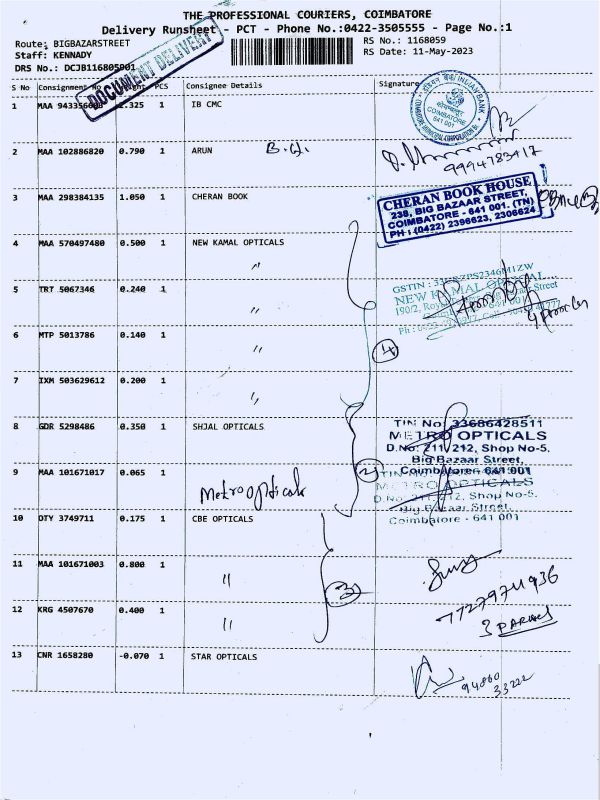 THE PROFESSIONAL COURIERS, COIMBATORE
Delivery Runsheet - PCT - Phone No.:0422-3505555 - Page No.:1
Route: BIGBAZARSTREET RS No.: 1168059
Staff: KENNADY RS Date: 11-May-2023
DRS No.: DCJB116805901
DOCUMENT DELIVERY
S No Consignment No Weight PCS Consignee Details Signature
1 MAA 2.325 1 IB CMC
COIMBATORE
641 001
2 MAA 102886820 0.790 1 ARUN
9994783417
3 MAA 298384135 1.050 1 CHERAN BOOK
CHERAN BOOK HOUSE
238, BIG BAZAAR STREET,
COIMBATORE - 641 001. (TN)
PH : (0422) 2396623, 2306624
4 MAA 570497480 0.500 1 NEW KAMAL OPTICALS
"
GSTIN :
NEW KAMAL OPTICAL
190/2,
5 TRT 5067346 0.240 1 "
6 MTP 5013786 0.140 1 "
4
7 IXM 503629612 0.200 1 "
8 GDR 5298486 0.350 1 SHJAL OPTICALS
TIN No: 33686428511
METRO OPTICALS
D.No: 211, 212, Shop No-5,
Big Bazaar Street,
Coimbatore- 641 001
9 MAA 101671017 0.065 1 Metro opticals
2
METRO OPTICALS
D.No: 211, 212, Shop No-5,
Big Bazaar Street,
Coimbatore - 641 001
10 DTY 3749711 0.175 1 CBE OPTICALS
11 MAA 101671003 0.800 1 "
3
7727971936
12 KRG 4507670 0.400 1 "
3 PARCELS
13 CNR 1658280 -0.070 1 STAR OPTICALS
94860
33222